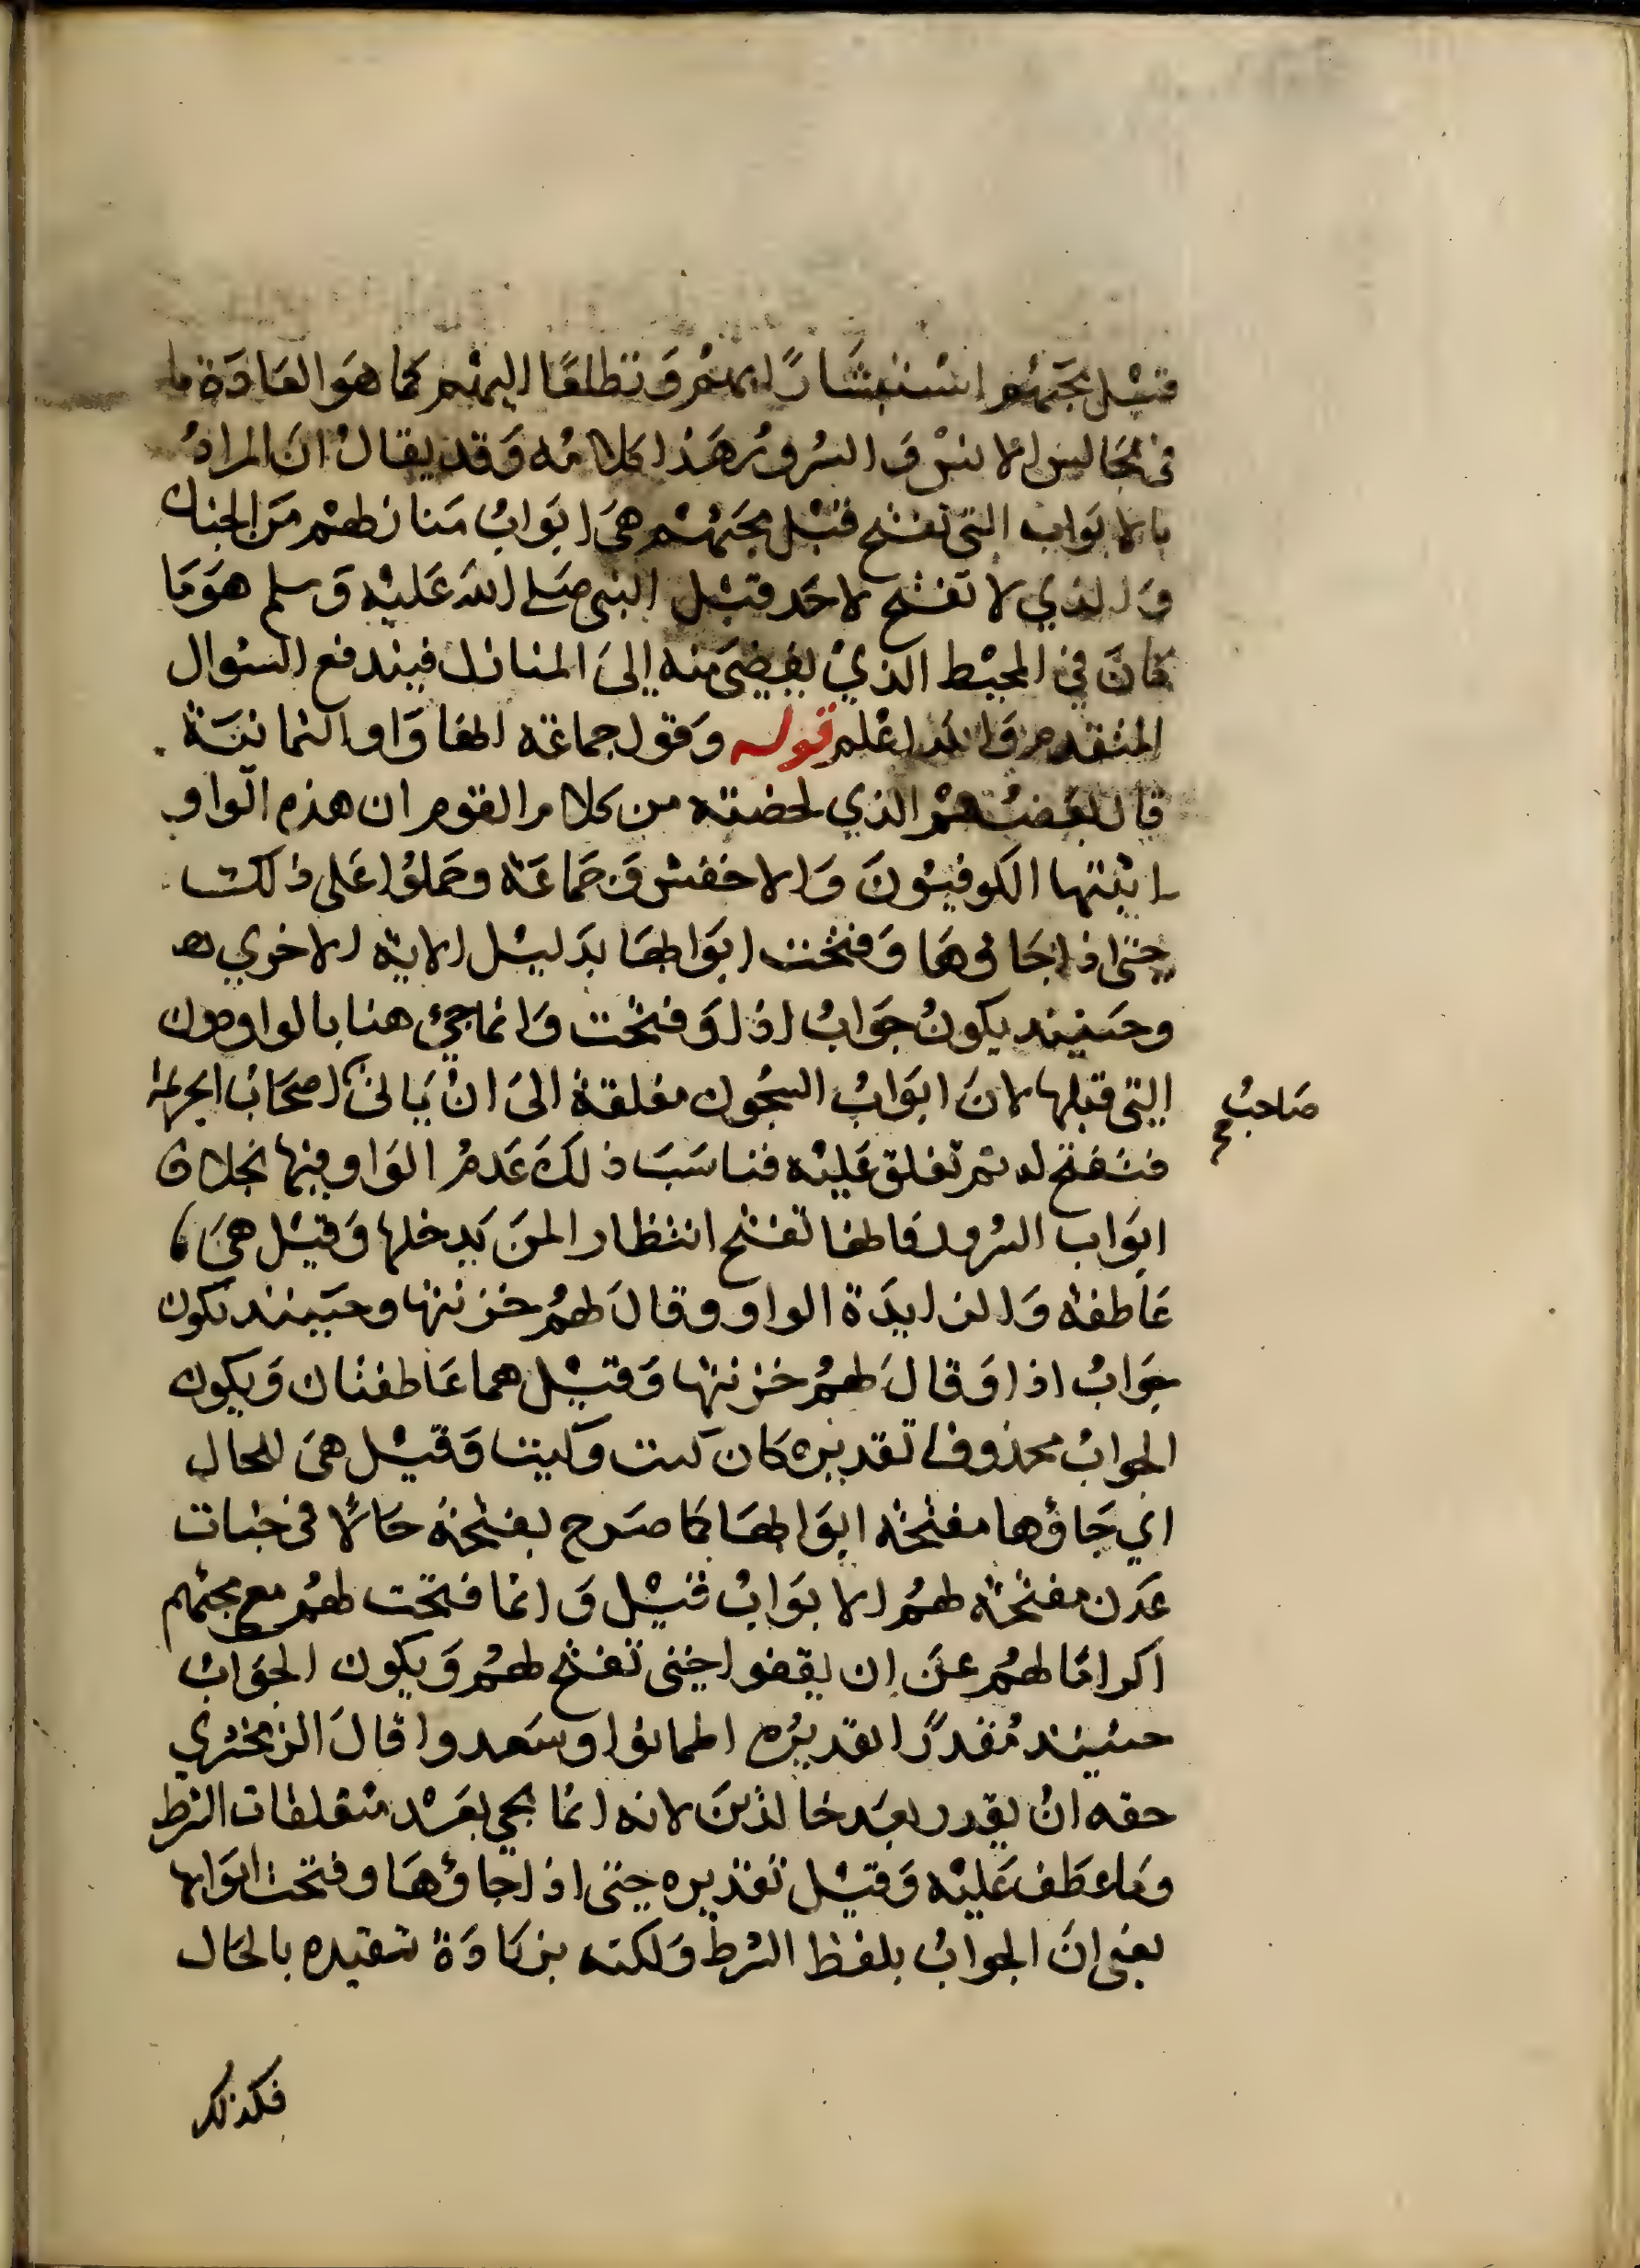 قبل مجيئهم استبشارًا بهم وتطلعًا اليهم كما هو العادة
في مجالس الانس والسرور هذا كلامه وقد يقال ان المراد
بالابواب التي تفتح قبل مجيئهم هي ابواب منازلهم من الجنان
والذي لا تفتح لاحد قبل النبي صلى الله عليه وسلم هو ما
كان في المحيط الذي يفضى منه إلى المنازل فيندفع السوال
المتقدم والله اعلم قوله وقول جماعة انها واو الثمانية
قال بعضهم الذي لخصته من كلام القوم ان هذه الواو
اثبتها الكوفيون والاخفش وجماعة وحملوا على ذلك
حتى اذا جاؤها وفتحت ابوابها بدليل الاية الاخري
وحينيد يكون جواب اذا وفتحت وانما جيء هنا بالواو دون
التي قبلها لان ابواب السجون مغلقة الى ان ياتي اصحاب الجريمة
صاحب
فتفتح له ثم تغلق عليه فناسب ذلك عدم الواو فيها بخلاف
ابواب السرور فانها تفتح انتظار المن يدخلها وقيل هي
عاطفة والزايدة الواو وقال لهم خزنتها وحينيد يكون
جواب اذا وقال لهم خزنتها وقيل هما عاطفتان ويكون
الجواب محذوفا تقديره كان كيت وكيت وقيل هي للحال
اي جاؤها مفتحة ابوابها كما صرح بمفتحة حالا في جنات
عدن مفتحة لهم الابواب قيل وانما فتحت لهم مع مجيئهم
اكراما لهم عن ان يقفوا حتى تفتح لهم ويكون الجواب
حينيد مقدرًا تقديره اطمانوا وسعدوا قال الزمخشري
حقه ان يقدر بعد خالدين لانه انما يجي بعد متعلقات الشرط
وما عطف عليه وقيل تقديره حتى اذا جاؤها وفتحت ابوابها
يعني ان الجواب بلفظ الشرط ولكنه بزيادة تقيده بالحال
فكذلك